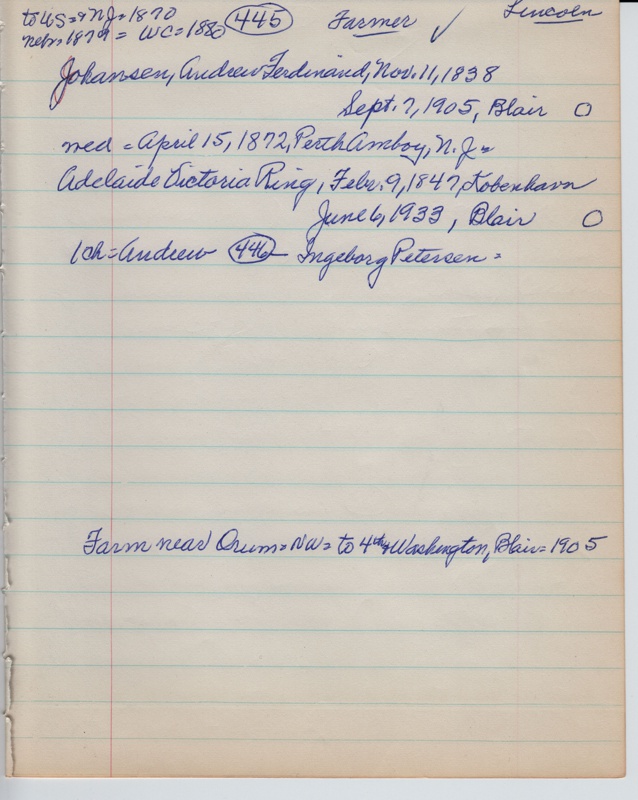 to US = & NJ = 1870 (445) Farmer ✓ Lincoln
Nebr. 1879 = WC = 1880
Johansen, Andrew Ferdinand, Nov. 11, 1838
Sept. 7, 1905, Blair O
wed = April 15, 1872, Perth Amboy, N.J =
Adelaide Victoria Ring, Febr. 9, 1847, Kobenhavn
June 6, 1933, Blair O
1 ch = Andrew (446) - Ingeborg Petersen =
Farm near Orum = NW = to 4th & Washington, Blair = 1905